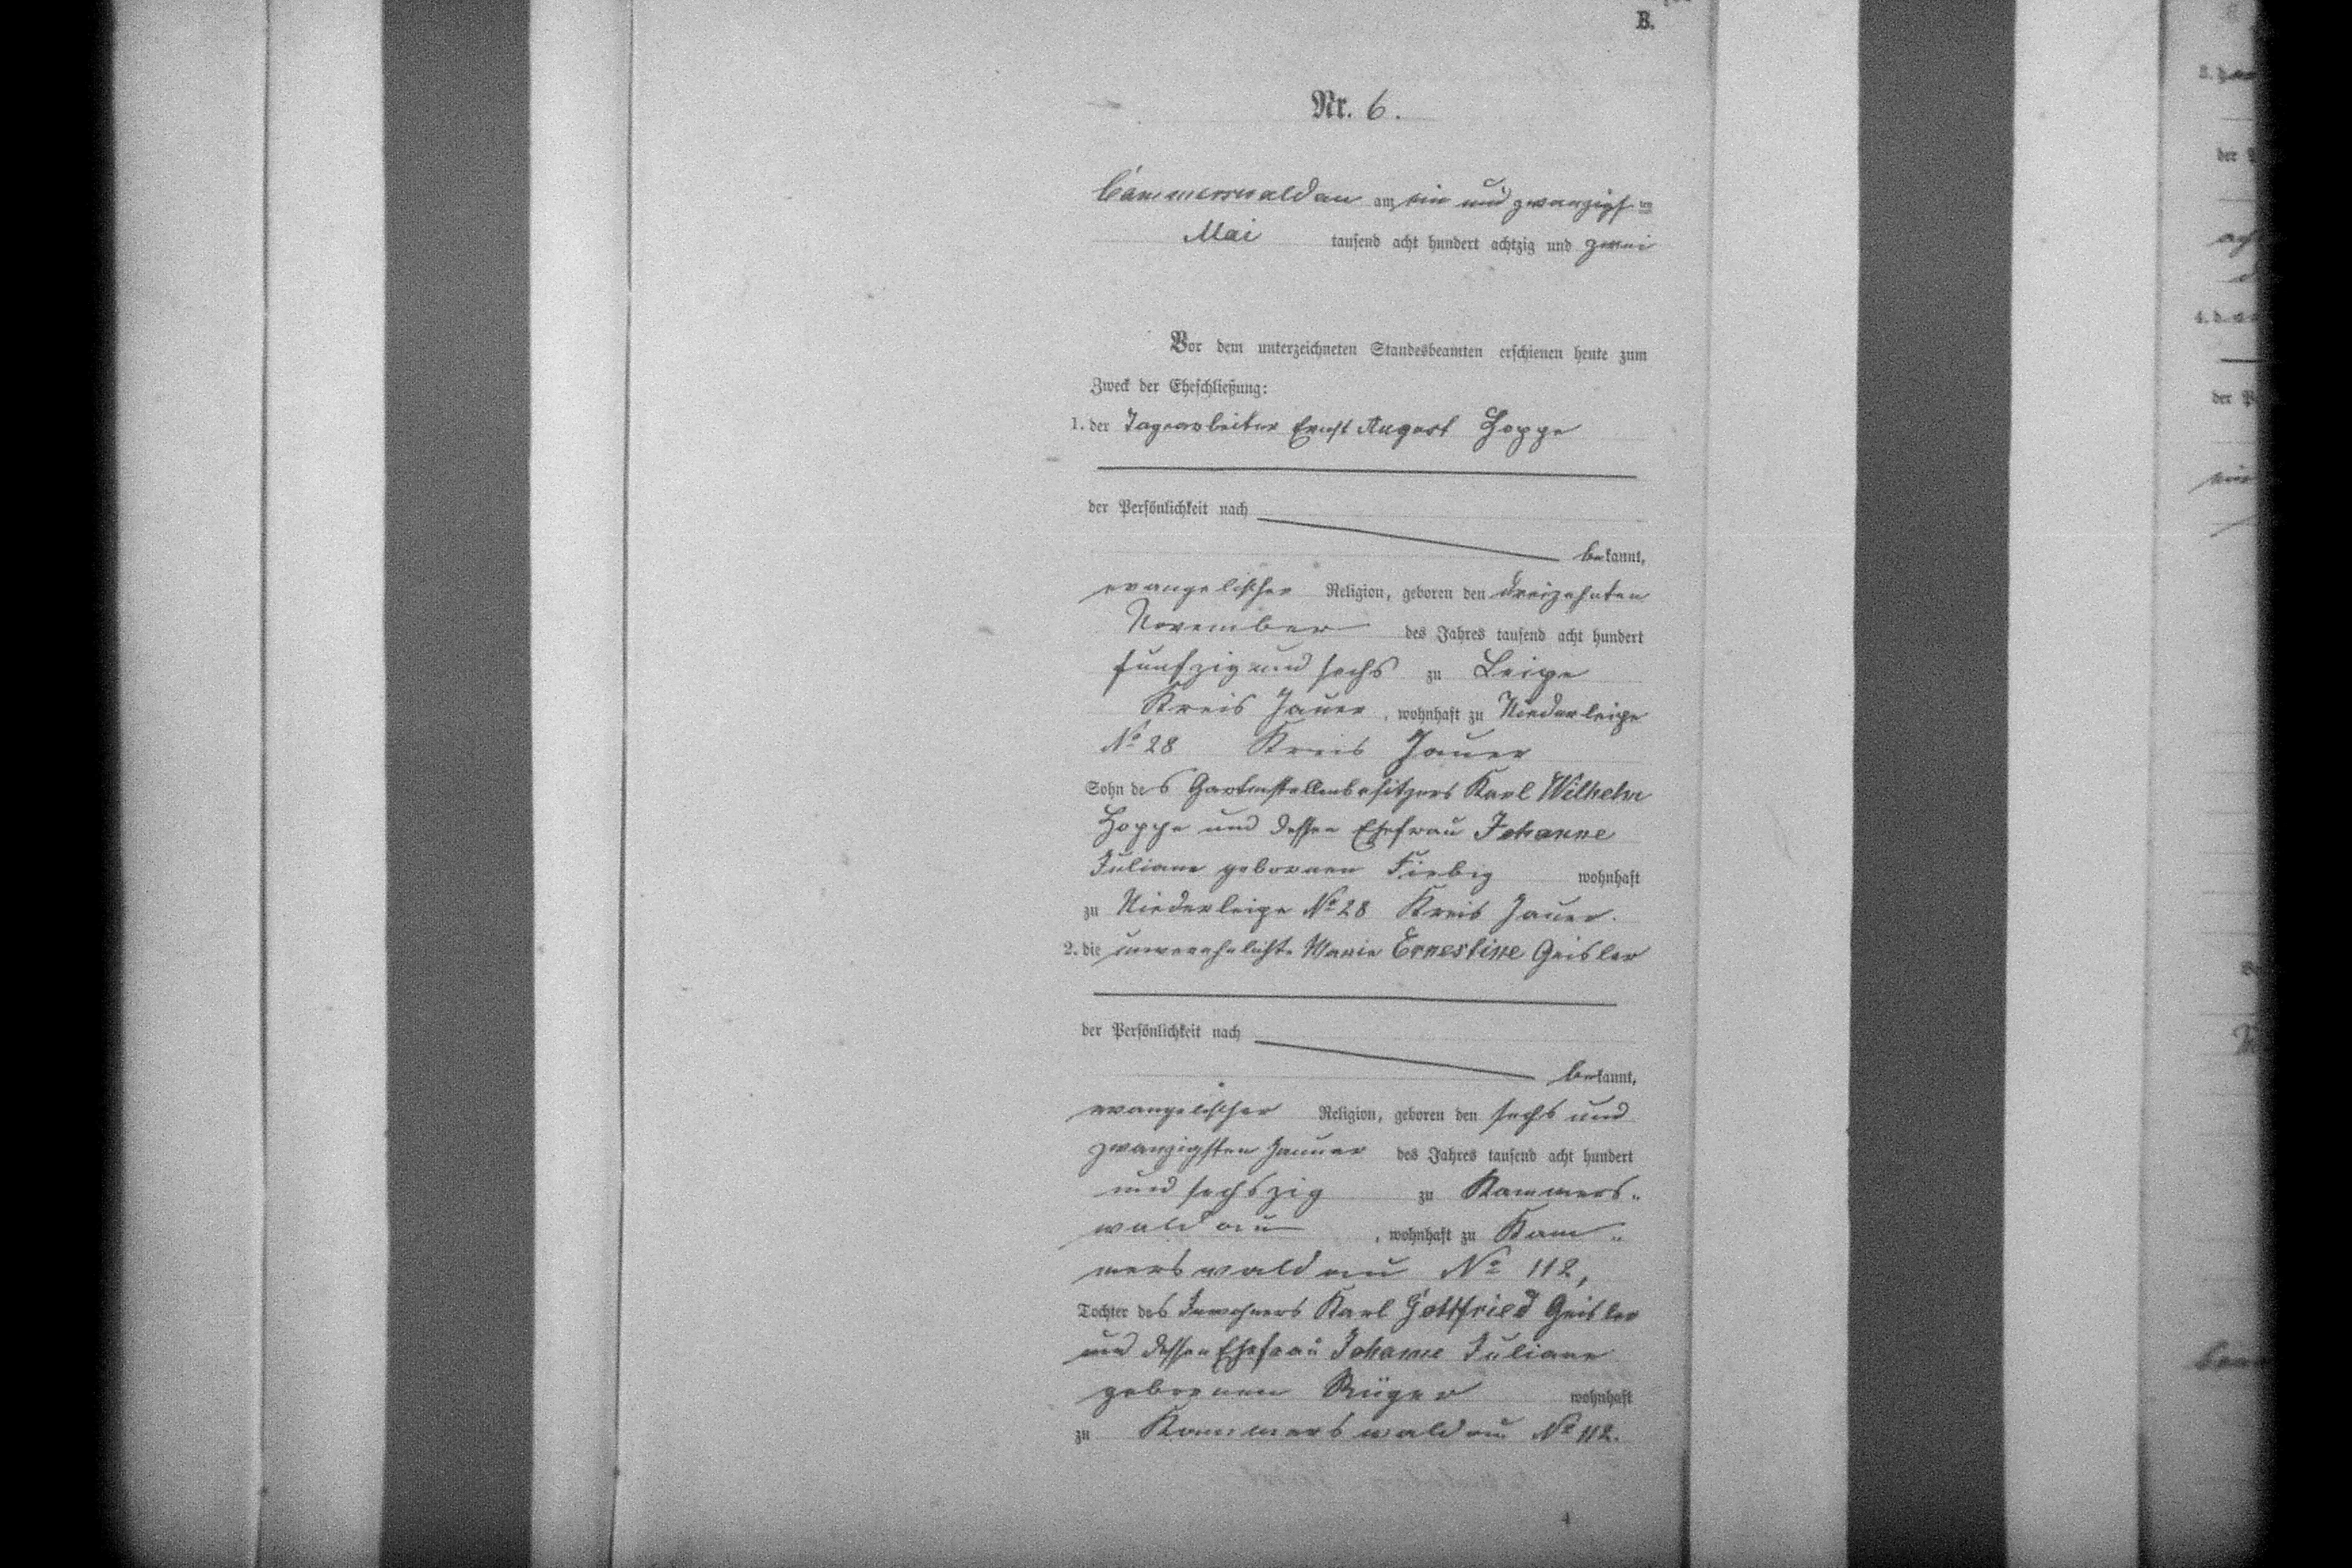 B.
Nr. 6.
Cammerswaldau am ein und zwanzigsten
Mai tausend acht hundert achtzig und zwei
Vor dem unterzeichneten Standesbeamten erschienen heute zum
Zweck der Eheschließung:
1. der Tagearbeiter Ernst August Hoppe
der Persönlichkeit nach
bekannt,
evangelischer Religion, geboren den dreizehnten
November des Jahres tausend acht hundert
funfzig und sechs zu Leipe
Kreis Jauer, wohnhaft zu Niederleipe
No 28 Kreis Jauer
Sohn des Gartenstellenbesitzers Karl Wilhelm
Hoppe und dessen Ehefrau Johanne
Juliane geborenen Fiebig wohnhaft
zu Niederleipe No 28 Kreis Jauer.
2. die unverehelichte Marie Ernestine Geisler
der Persönlichkeit nach
bekannt,
evangelischer Religion, geboren den sechs und
zwanzigsten Januar des Jahres tausend acht hundert
und sechszig zu Kammers„
waldau, wohnhaft zu Kam„
merswaldau No 112,
Tochter des Inwohners Karl Gottfried Geisler
und dessen Ehefrau Johanne Juliane
geborenen Rüger wohnhaft
zu Kammerswaldau No 112.
4